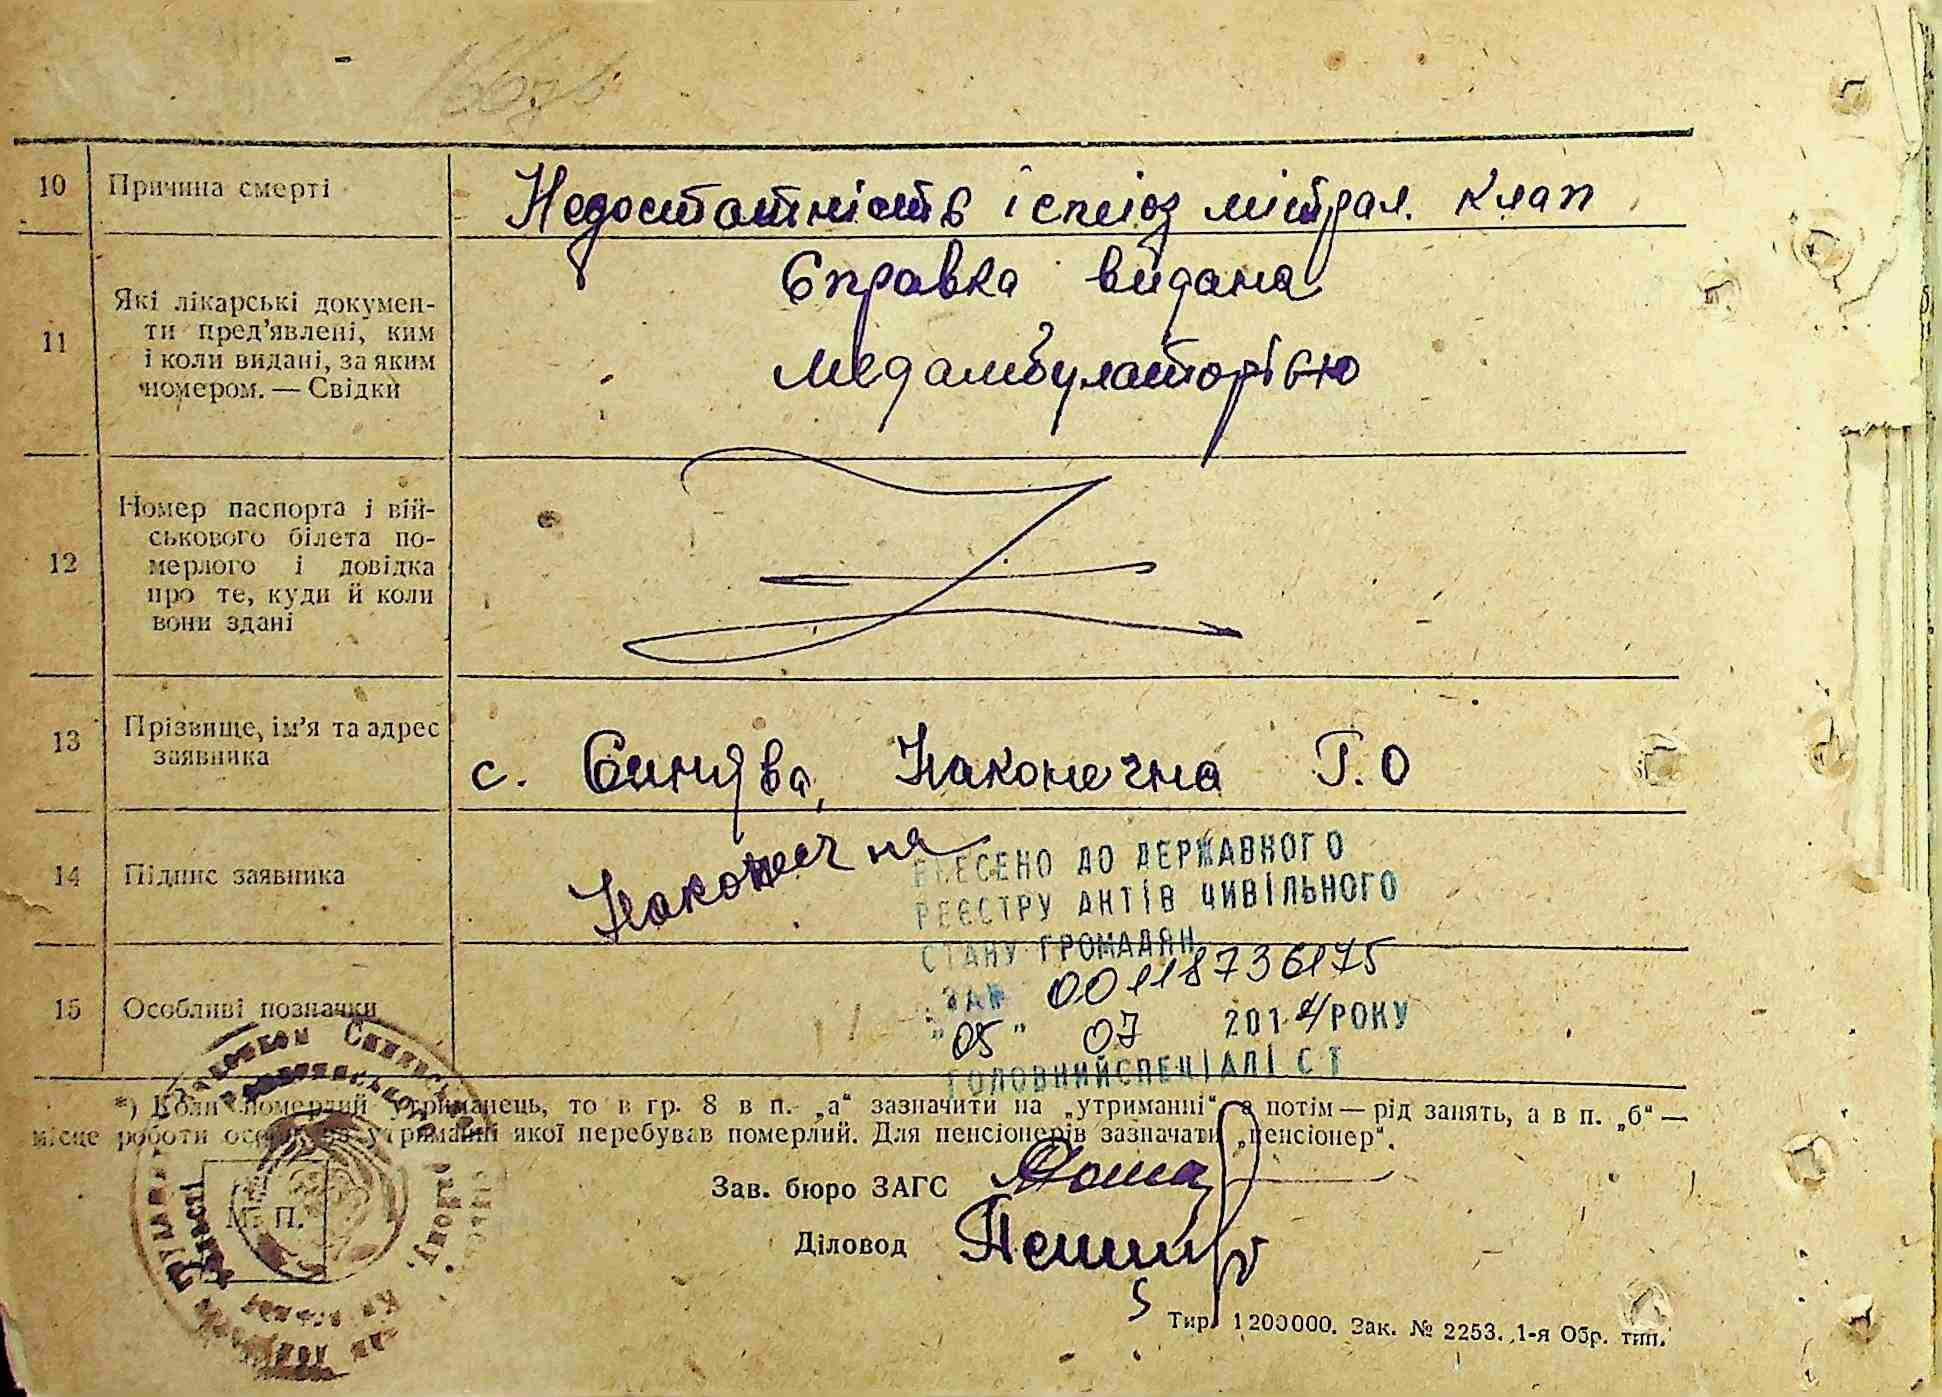 10 Причина смерті Недостатність і спаюз мітрал. клап
11 Які лікарські докумен-
ти пред'явлені, ким
і коли видані, за яким
номером. — Свідки
Справка видана
медамбулаторією
12 Номер паспорта і вій-
ськового білета по-
мерлого і довідка
про те, куди й коли
вони здані
13 Прізвище, ім'я та адрес
заявника
с. Синява, Наконечна Г.О
14 Підпис заявника Наконечна
ВНЕСЕНО ДО ДЕРЖАВНОГО
РЕЄСТРУ АКТІВ ЦИВІЛЬНОГО
СТАНУ ГРОМАДЯН
ЗА № 00118736175
"05" 07 2014 РОКУ
ГОЛОВНИЙ СПЕЦІАЛІСТ
15 Особливі позначки
*) Коли померлий утриманець, то в гр. 8 в п. „а“ зазначити на „утриманні“ а потім — рід занять, а в п. „б“ —
місце роботи особи, на утриманні якої перебував померлий. Для пенсіонерів зазначати „пенсіонер“.
М. П.
Зав. бюро ЗАГС
Діловод
Тир. 1200000. Зак. № 2253. 1-я Обр. тип.